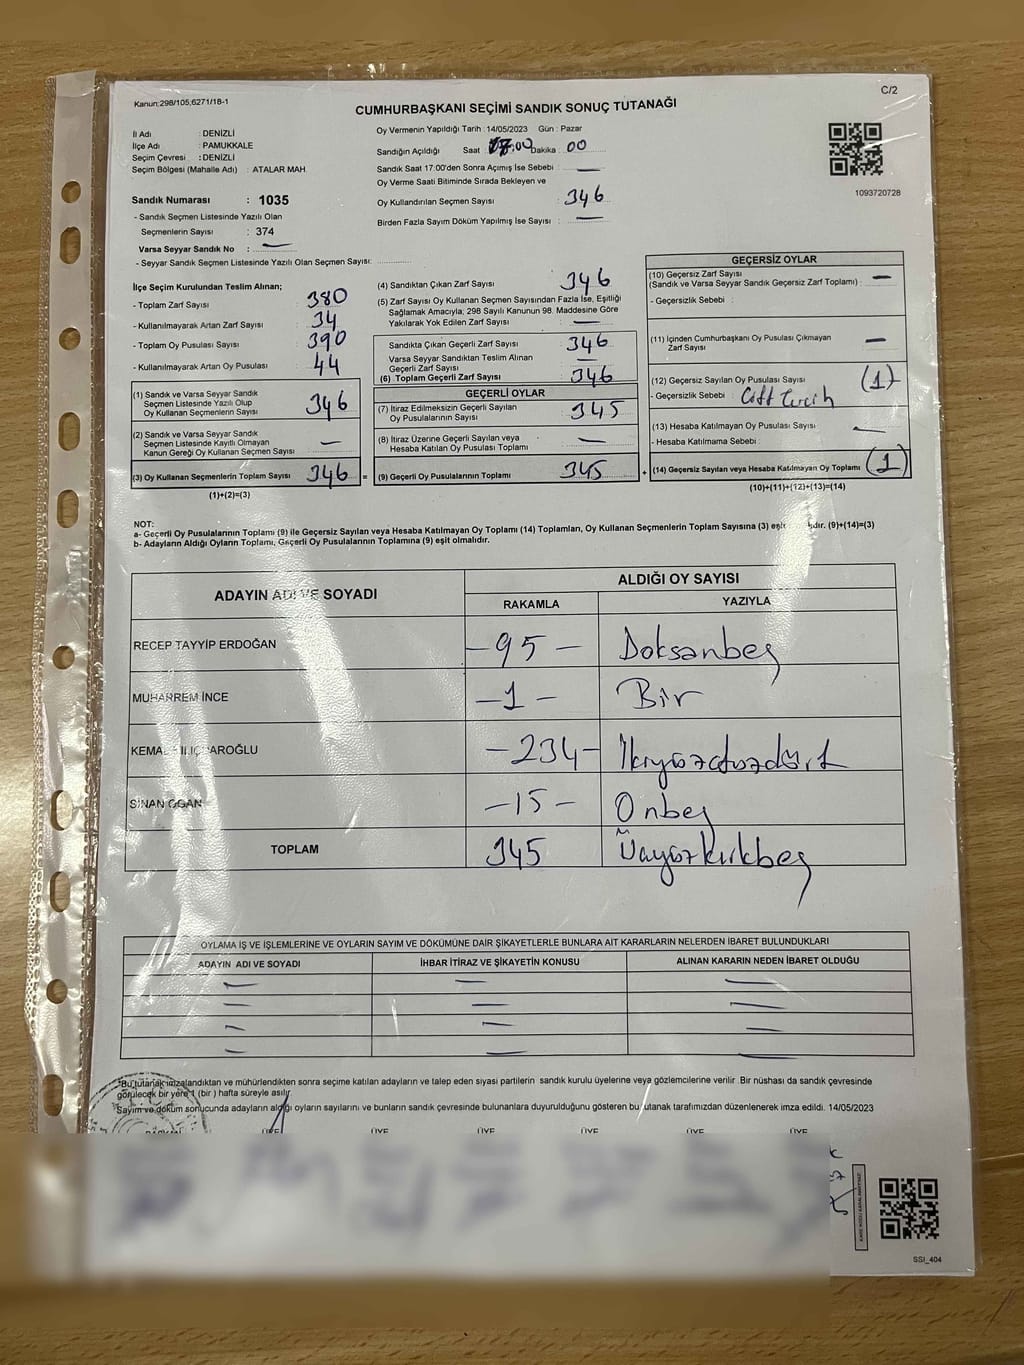 Kanun:298/105,6271/18-1
C/2
CUMHURBAŞKANI SEÇİMİ SANDIK SONUÇ TUTANAĞI
İl Adı : DENİZLİ
İlçe Adı : PAMUKKALE
Seçim Çevresi : DENİZLİ
Seçim Bölgesi (Mahalle Adı) : ATALAR MAH.
Sandık Numarası : 1035
- Sandık Seçmen Listesinde Yazılı Olan
Seçmenlerin Sayısı : 374
Varsa Seyyar Sandık No : —
- Seyyar Sandık Seçmen Listesinde Yazılı Olan Seçmen Sayısı:
Oy Vermenin Yapıldığı Tarih :14/05/2023 Gün : Pazar
Sandığın Açıldığı Saat : 17:00 Dakika : 00
Sandık Saat 17:00'den Sonra Açımış İse Sebebi : —
Oy Verme Saati Bitiminde Sırada Bekleyen ve
Oy Kullandırılan Seçmen Sayısı : 346
Birden Fazla Sayım Döküm Yapılmış İse Sayısı : —
1093720728
İlçe Seçim Kurulundan Teslim Alınan;
- Toplam Zarf Sayısı : 380
- Kullanılmayarak Artan Zarf Sayısı : 34
- Toplam Oy Pusulası Sayısı : 390
- Kullanılmayarak Artan Oy Pusulası : 44
(1) Sandık ve Varsa Seyyar Sandık
Seçmen Listesinde Yazılı Olup
Oy Kullanan Seçmenlerin Sayısı 346
(2) Sandık ve Varsa Seyyar Sandık
Seçmen Listesinde Kayıtlı Olmayan
Kanun Gereği Oy Kullanan Seçmen Sayısı —
(3) Oy Kullanan Seçmenlerin Toplam Sayısı 346 =
(1)+(2)=(3)
(4) Sandıktan Çıkan Zarf Sayısı : 346
(5) Zarf Sayısı Oy Kullanan Seçmen Sayısından Fazla İse, Eşitliği
Sağlamak Amacıyla; 298 Sayılı Kanunun 98. Maddesine Göre
Yakılarak Yok Edilen Zarf Sayısı : —
Sandıkta Çıkan Geçerli Zarf Sayısı : 346
Varsa Seyyar Sandıktan Teslim Alınan
Geçerli Zarf Sayısı : —
(6) Toplam Geçerli Zarf Sayısı : 346
GEÇERLİ OYLAR
(7) İtiraz Edilmeksizin Geçerli Sayılan
Oy Pusulalarının Sayısı : 345
(8) İtiraz Üzerine Geçerli Sayılan veya
Hesaba Katılan Oy Pusulası Toplamı : —
(9) Geçerli Oy Pusulalarının Toplamı 345 +
GEÇERSİZ OYLAR
(10) Geçersiz Zarf Sayısı
(Sandık ve Varsa Seyyar Sandık Geçersiz Zarf Toplamı) : —
- Geçersizlik Sebebi :
(11) İçinden Cumhurbaşkanı Oy Pusulası Çıkmayan
Zarf Sayısı : —
(12) Geçersiz Sayılan Oy Pusulası Sayısı : (1)
- Geçersizlik Sebebi : Çift tercih
(13) Hesaba Katılmayan Oy Pusulası Sayısı : —
- Hesaba Katılmama Sebebi :
(14) Geçersiz Sayılan veya Hesaba Katılmayan Oy Toplamı (1)
(10)+(11)+(12)+(13)=(14)
NOT:
a- Geçerli Oy Pusulalarının Toplamı (9) ile Geçersiz Sayılan veya Hesaba Katılmayan Oy Toplamı (14) Toplamları, Oy Kullanan Seçmenlerin Toplam Sayısına (3) (9)+(14)=(3)
b- Adayların Aldığı Oyların Toplamı, Geçerli Oy Pusulalarının Toplamına (9) eşit olmalıdır.
ADAYIN ADI VE SOYADI ALDIĞI OY SAYISI
RAKAMLA YAZIYLA
RECEP TAYYİP ERDOĞAN -95- Doksanbeş
MUHARREM İNCE -1- Bir
KEMAL -234- İkiyüzotuzdört
SİNAN OĞAN -15- Onbeş
TOPLAM 345 Üçyüzkırkbeş
OYLAMA İŞ VE İŞLEMLERİNE VE OYLARIN SAYIM VE DÖKÜMÜNE DAİR ŞİKAYETLERLE BUNLARA AİT KARARLARIN NELERDEN İBARET BULUNDUKLARI
ADAYIN ADI VE SOYADI İHBAR İTİRAZ VE ŞİKAYETİN KONUSU ALINAN KARARIN NEDEN İBARET OLDUĞU
— — —
— — —
— — —
— — —
Bu tutanak imzalandıktan ve mühürlendikten sonra seçime katılan adayların ve talep eden siyasi partilerin sandık kurulu üyelerine veya gözlemcilerine verilir. Bir nüshası da sandık çevresinde
görülecek bir yere 1 (bir) hafta süreyle asılır.
Sayım ve döküm sonucunda adayların aldığı oyların sayılarını ve bunların sandık çevresinde bulunanlara duyurulduğunu gösteren bu tutanak tarafımızdan düzenlenerek imza edildi. 14/05/2023
ÜYE ÜYE ÜYE ÜYE ÜYE ÜYE
SSI_404